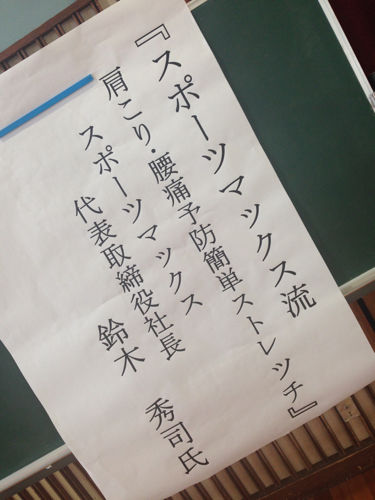 『スポーツマックス流
肩こり・腰痛予防簡単ストレッチ』
スポーツマックス
代表取締役社長　鈴木　秀司氏